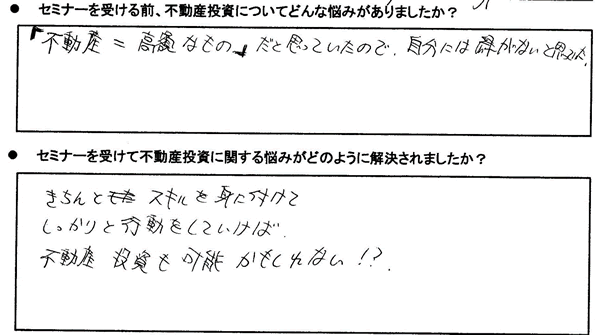 ● セミナーを受ける前、不動産投資についてどんな悩みがありましたか？
「不動産 = 高価なもの」だと思っていたので、自分には縁がないと思ってた。
● セミナーを受けて不動産投資に関する悩みがどのように解決されましたか？
きちんと スキルを身に付けて
しっかりと行動をしていけば、
不動産 投資も可能かもしれない!?.